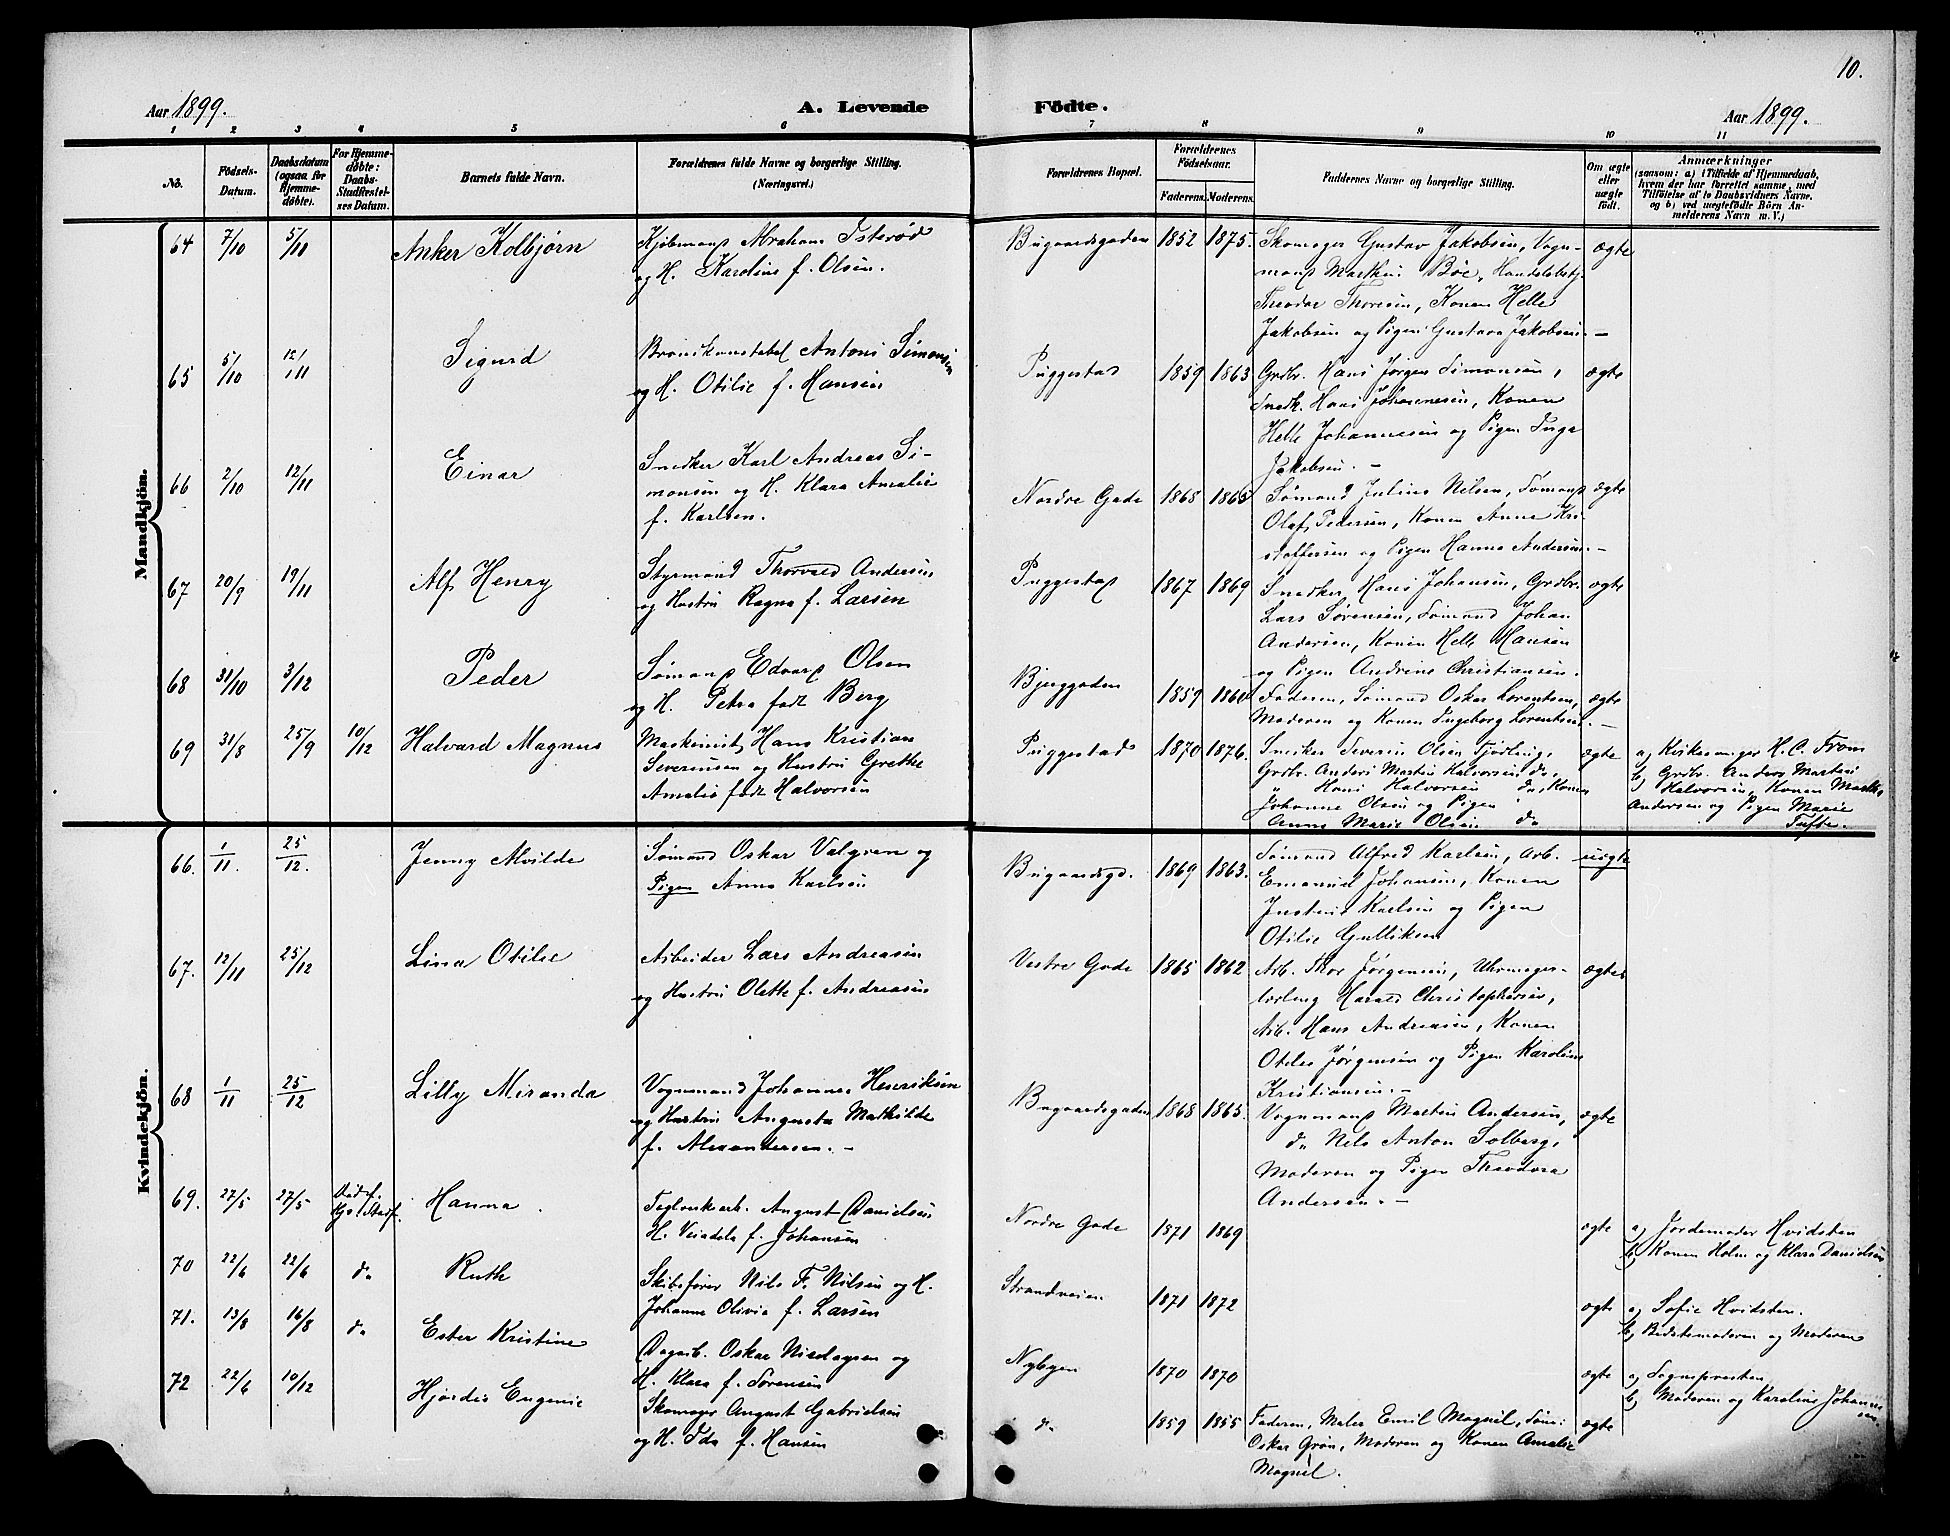 10.
Aar 1899.
A. Levende
Födte.
Aar 1899.
1 2 3 4 5 6 7 8 9 10 11
No.
Födsels-
Datum.
Daabsdatum
(ogsaa for
Hjemme-
döbte).
For Hjemme-
döbte:
Daabs-
Stadfæstel-
ses Datum.
Barnets fulde Navn.
Forældrenes fulde Navne og borgerlige Stilling.
(Næringsvei.)
Forældrenes Bopæl.
Forældrenes
Födselsaar.
Faderens.
Moderens.
Faddernes Navne og borgerlige Stilling.
Om ægte
eller
uægte
født.
Anmærkninger
(saasom: a) i Tilfælde af Hjemmedaab,
hvem der har forrettet samme, med
Tilföielse af to Daabsvidners Navne.
og b) ved uægtefødte Börn An-
melderens Navn m. V.)
Mandkjön.
64 7/10 5/11
Anker Kolbjørn
Kjöbmand Abraham Isteröd
og H. Karoline f. Olsen.
Bugaardsgaden 1852 1875.
Skomager Gustav Jakobsen, Vogn-
mand Markus Böe, Handelsbetj.
Theodor Thoresen, Konen Helle
Jakobsen og Pigen Gustava Jakobsen. —
ægte
65 5/10 12/11
Sigurd
Brandkonstabel Antoni Simonsen
og H. Otilie f. Hansen
Puggestad 1859 1863
Grdbr. Hans Jörgen Simonsen,
Snedk. Hans Johannesen, Konen
Helle Johannesen og Pigen Inga
Jakobsen. —
ægte
66 2/10 12/11
Einar
Snedker Karl Andreas Si-
monsen og H. Klara Amalie
f. Karlsen.
Nordre Gade 1868 1865
Sömand Julius Nilsen, Sömand
Olaf Pedersen, Konen Anne Kri-
stoffersen og Pigen Hanna Andersen. —
ægte
67 20/9 19/11
Alf Henry
Styrmand Thorvald Andersen
og Hustru Ragna f. Larsen
Puggestad 1867 1869
Snedker Hans Johansen, Grdbr.
Lars Sörensen, Sömand Johan
Andersen, Konen Helle Hansen
og Pigen Andrine Christiansen.
ægte
68 31/10 3/12
Peder
Sömand Edvard Olsen
og H. Petra født Berg
Bjerggaden 1859 1860
Faderen, Sömand Oskar Lorentsen,
Moderen og Konen Ingeborg Lorentsen. —
ægte
69 31/8 25/9 10/12
Halvard Magnus
Maskinist Hans Kristian
Severinsen og Hustru Grethe
Amalie født Halvorsen
Puggestad 1870 1876.
Snedker Severin Olsen Tjödling,
Grdbr. Anders Martin Halvorsen do,
" Hans Halvorsen do, Konen
Johanne Olsen og Pigen
Anne Marie Olsen do
ægte
a) Kirkesanger H. C. From
b) Grdbr. Anders Martin
Halvorsen, Konen Marthe
Andersen og Pigen Marie
Tufte.
Kvindekjön.
66. 1/11. 25/12.
Jenny Alvilde
Sömand Oskar Valgren og
Pigen Anna Karlsen
Bugaardsgd. 1869 1863.
Sömand Alfred Karlsen, Arb.
Emanuel Johansen, Konen
Justine Karlsen og Pigen
Otilie Gulliksen
uægte
67. 12/11 25/12
Lina Otilie
Arbeider Lars Andreasen
og Hustru Olette f. Andreasen
Vestre Gade 1865 1862
Arb. Thor Jörgensen, Uhrmager-
lærling Harald Christophersen,
Arb. Hans Andreasen, Konen
Otilie Jörgensen og Pigen Karoline
Kristiansen. —
ægte
68 1/11 25/12
Lilly Miranda
Vognmand Johannes Henriksen
og Hustru Augusta Mathilde
f. Alexandersen. —
Bugaardsgaden 1868 1865.
Vognmand Martin Andersen,
do Nils Anton Solberg,
Moderen og Pigen Theodora
Andersen. —
ægte
69. 27/5 27/5
Hanna
Teglverksarb. August Danielsen
H. f. Johansen
Nordre Gade 1871 1869
ægte
a) Jordemoder Hvidsten
b) Konen Holm og Klara Danielsen
70 22/6 22/6 do
Ruth
Skibsförer Nils F. Nilsen og H.
Johanne Olivia f. Larsen
Strandveien 1871 1872
ægte
a) Sofie Hvidsten.
b) Bedstemoderen og Moderen
71. 13/8 16/8 do
Ester Kristine
Dagarb. Oskar og
H. Klara f. Sorensen
Nybyen 1870 1870
ægte
a) Sognepresten
b) Moderen og Karoline Johannesen.
72 22/6 10/12
Hjørdis Eugenie
Skomager August Gabrielsen
og H. Ida f. Hansen
do 1859 1855
Faderen, Maler Emil Magnil, Söm.
Oskar Grön, Moderen og Konen Amalie
Magnil.
ægte